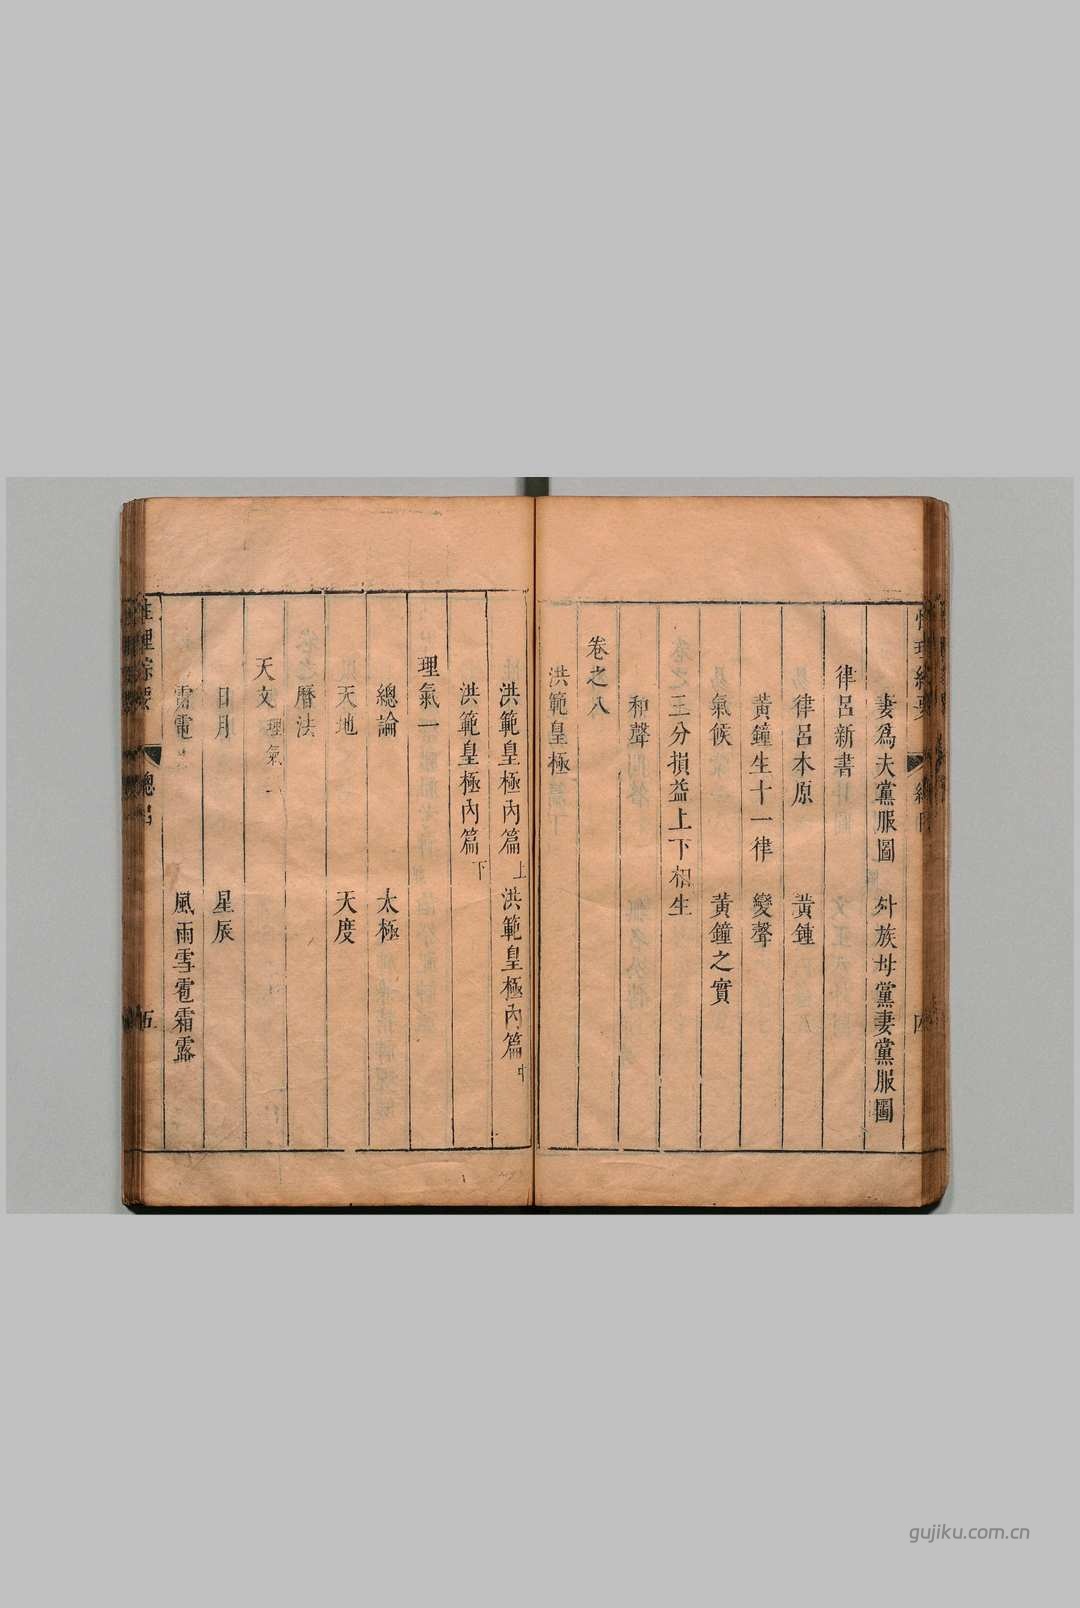 妻爲夫黨服圖　外族母黨妻黨服圖
律呂新書
律呂本原　黃鍾
黃鐘生十一律　變聲
氣候　黃鐘之實
三分損益上下相生
和聲
卷之八
洪範皇極
洪範皇極內篇上　洪範皇極內篇中
洪範皇極內篇下
理氣一
總論　太極
天地　天度
曆法
天文理氣一
日月　星辰
雷電　風雨雪雹霜露
性理綜要　總目　五
gujiku.com.cn